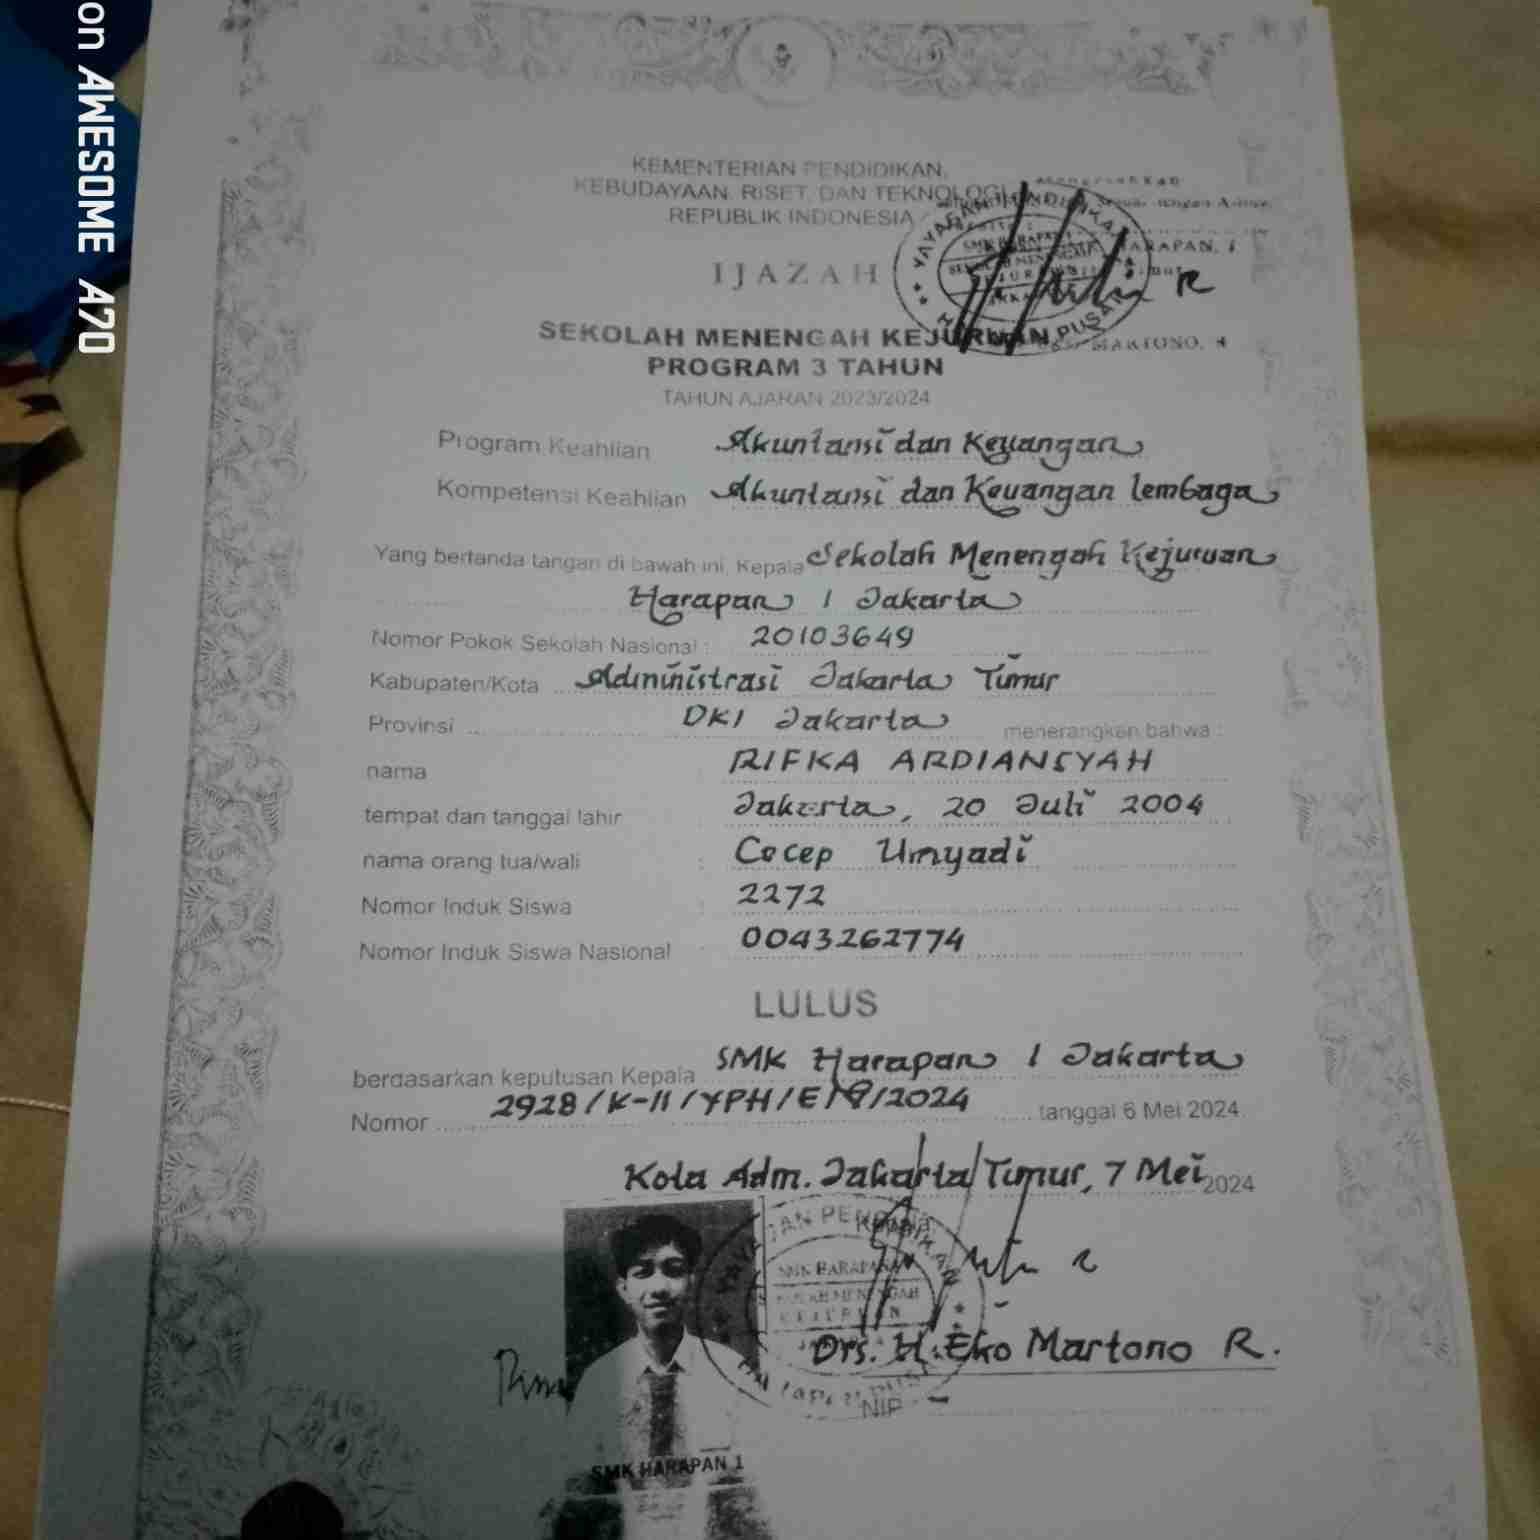 on AWESOME A70
KEMENTERIAN PENDIDIKAN,
KEBUDAYAAN, RISET, DAN TEKNOLOGI
REPUBLIK INDONESIA
IJAZAH
SEKOLAH MENENGAH KEJURUAN
PROGRAM 3 TAHUN
TAHUN AJARAN 2023/2024
Program Keahlian Akuntansi dan Keuangan
Kompetensi Keahlian Akuntansi dan Keuangan lembaga
Yang bertanda tangan di bawah ini, Kepala Sekolah Menengah Kejuruan
Harapan 1 Jakarta
Nomor Pokok Sekolah Nasional : 20103649
Kabupaten/Kota Administrasi Jakarta Timur
Provinsi DKI Jakarta menerangkan bahwa :
nama RIFKA ARDIANSYAH
tempat dan tanggal lahir Jakarta, 20 Juli 2004
nama orang tua/wali : Cecep Umyadi
Nomor Induk Siswa : 2272
Nomor Induk Siswa Nasional : 0043262774
LULUS
berdasarkan keputusan Kepala SMK Harapan 1 Jakarta
Nomor 2928/K-11/YPH/E/9/2024 tanggal 6 Mei 2024
Kota Adm. Jakarta Timur, 7 Mei 2024
Kepala
YAYASAN PENDIDIKAN
SMK HARAPAN 1
SEKOLAH MENENGAH
KEJURUAN
Drs. H. Eko Martono R.
NIP -
SMK HARAPAN 1